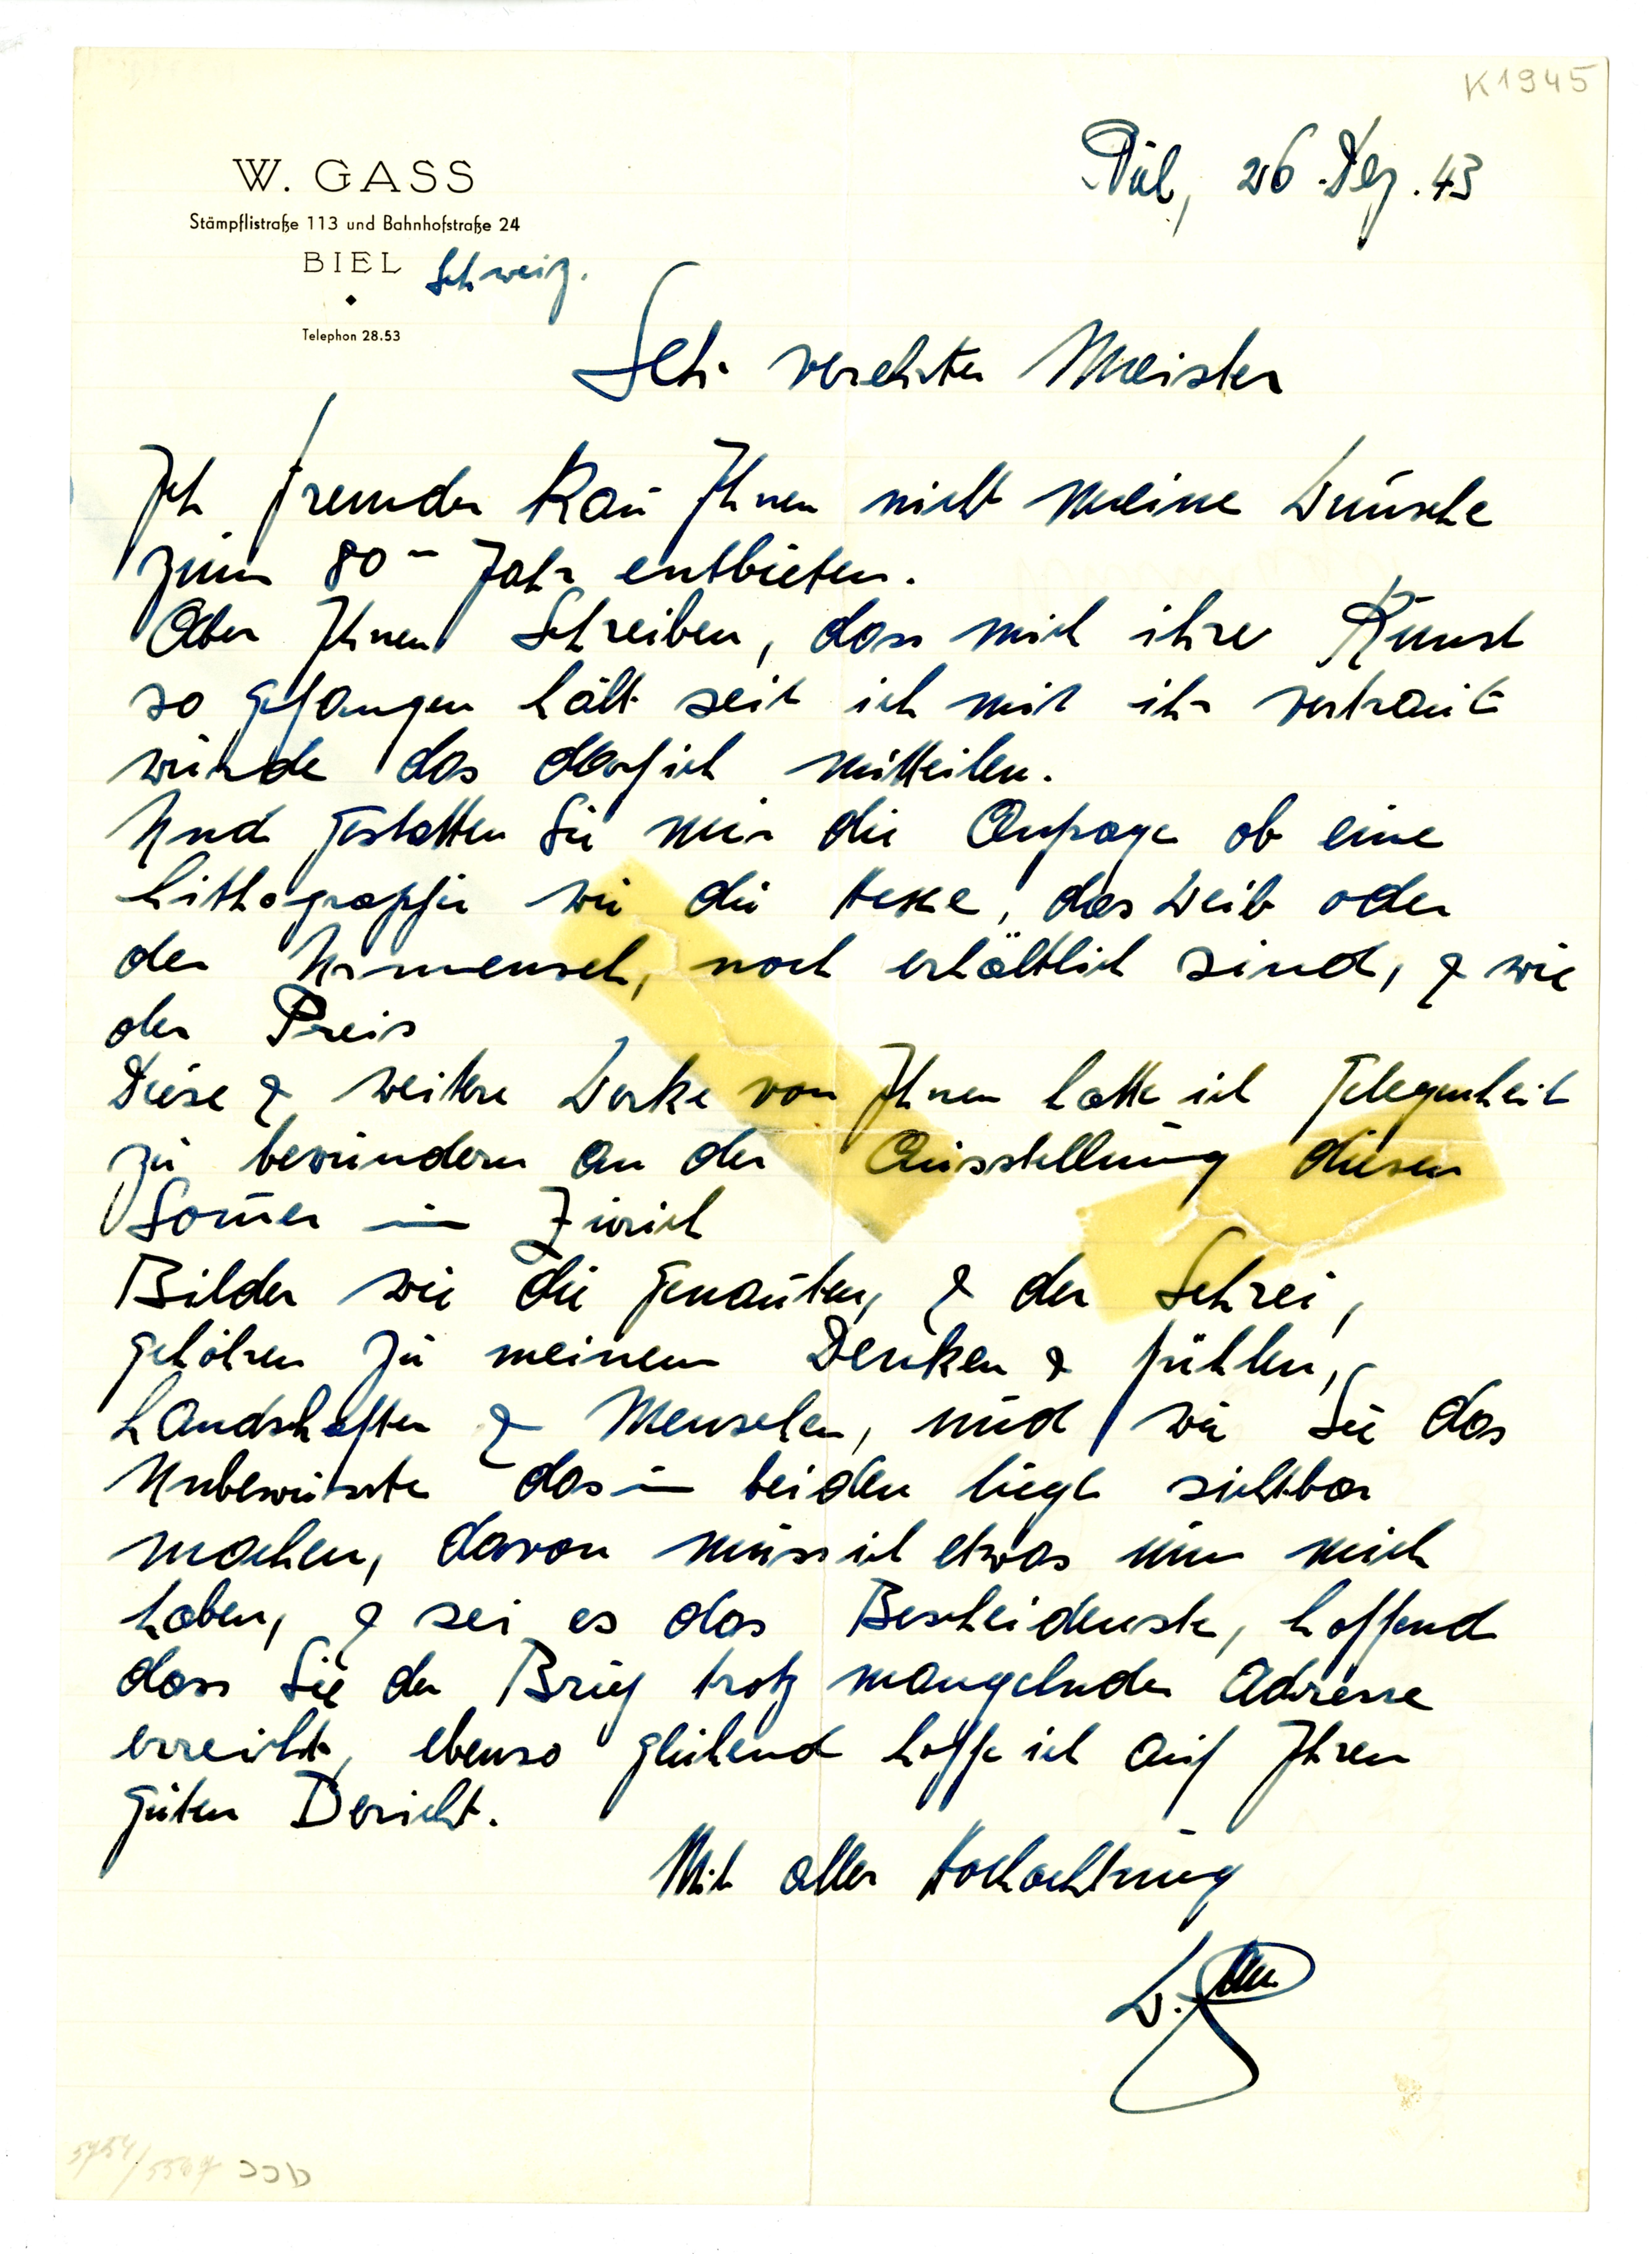 K1945
W. GASS
Stämpflistraße 113 und Bahnhofstraße 24
BIEL Schweiz.
Telephon 28.53
Biel, 26. Dez. 43
Sehr verehrter Meister
Ich fremder kañ Ihnen nicht meine Wünsche
zum 80- Jahr entbieten.
Aber Ihnen Schreiben, dass mich ihre Kunst
so gefangen hält seit ich mit ihr vertraut
wurde das darf ich mitteilen.
Und gestatten Sie mir die Anfrage ob eine
Lithographie wie die Hexe, das Weib oder
der Urmensch, noch erhältlich sind, & wie
der Preis
Diese & weitere Werke von Ihnen hatte ich Gelegenheit
zu bewundern an der Ausstellung diesen
Som̄er in Zürich
Bilder wie die genañten, & der Schrei,
gehören zu meinem Denken & fühlen,
Landschaften & Menschen, und wie Sie das
Unbewusste das in beiden liegt sichtbar
machen, davon muss ich etwas um mich
haben, & sei es das Bescheidenste, hoffend
dass Sie der Brief trotz mangelnder Adresse
erreicht, ebenso glühend hoffe ich auf Ihren
guten Bericht.
Mit aller Hochachtung
W. Gass